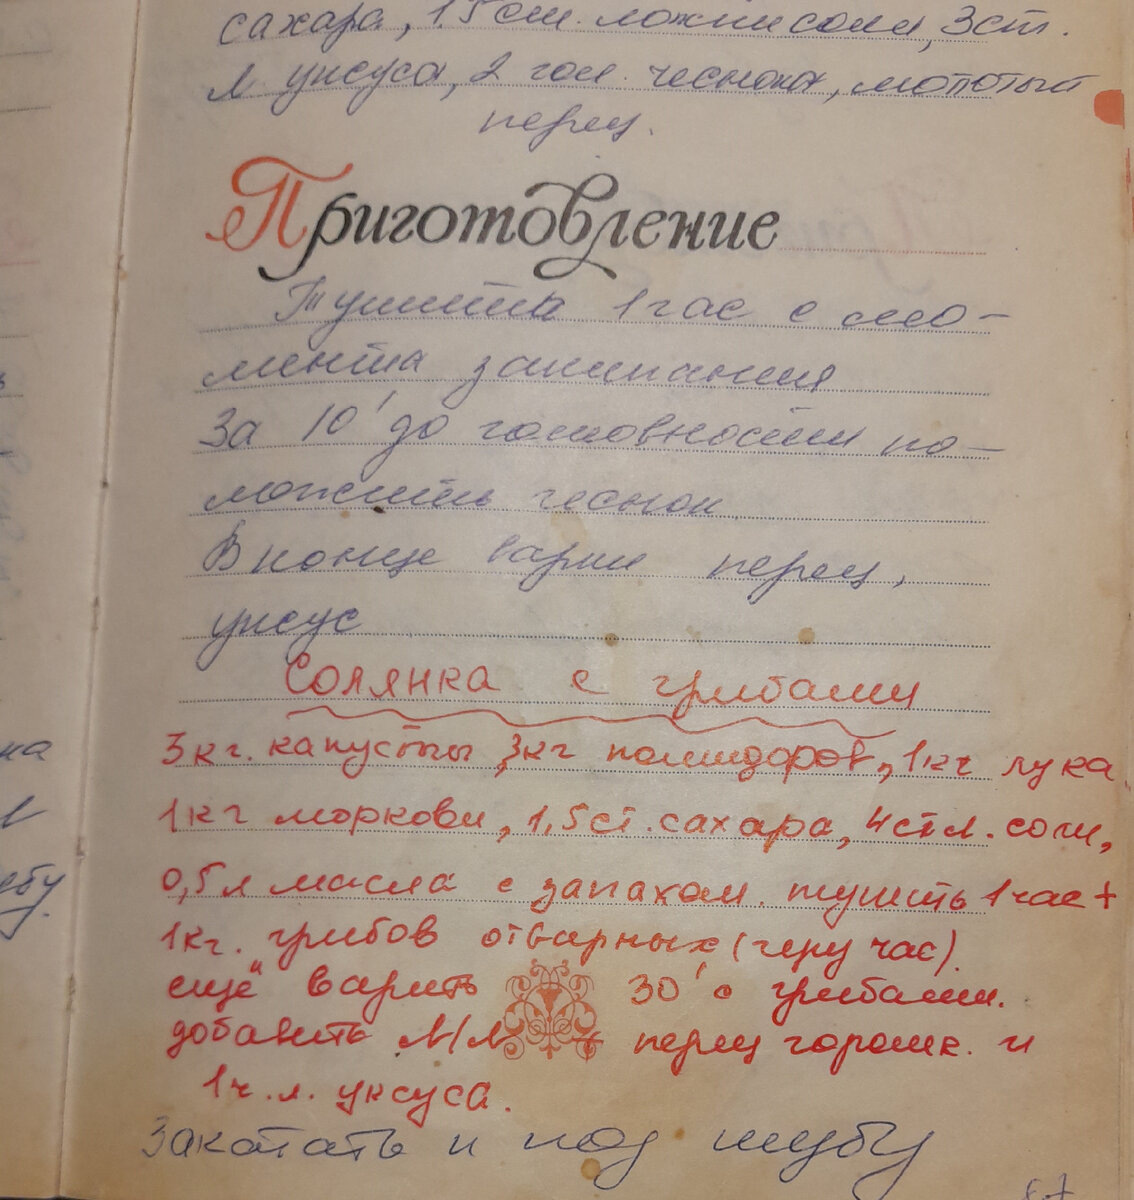 сахара, 1,5 ст. ложки соли, 3 ст.
л уксуса, 2 гол. чеснока, молотый
перец.
Приготовление
Тушить 1 час с мо-
мента закипания
За 10' до готовности по-
ложить чеснок
В конце варки перец,
уксус
Солянка с грибами
3кг. капусты, 3кг помидоров, 1кг лука
1кг моркови, 1,5 ст. сахара, 4 ст л. соли,
0,5 л масла с запахом. тушить 1 час +
1кг. грибов отварных (через час).
ещё варить 30' с грибами.
добавить л/л + перец горошк. и
1 ч. л. уксуса.
Закатать и под шубу
на
ебу